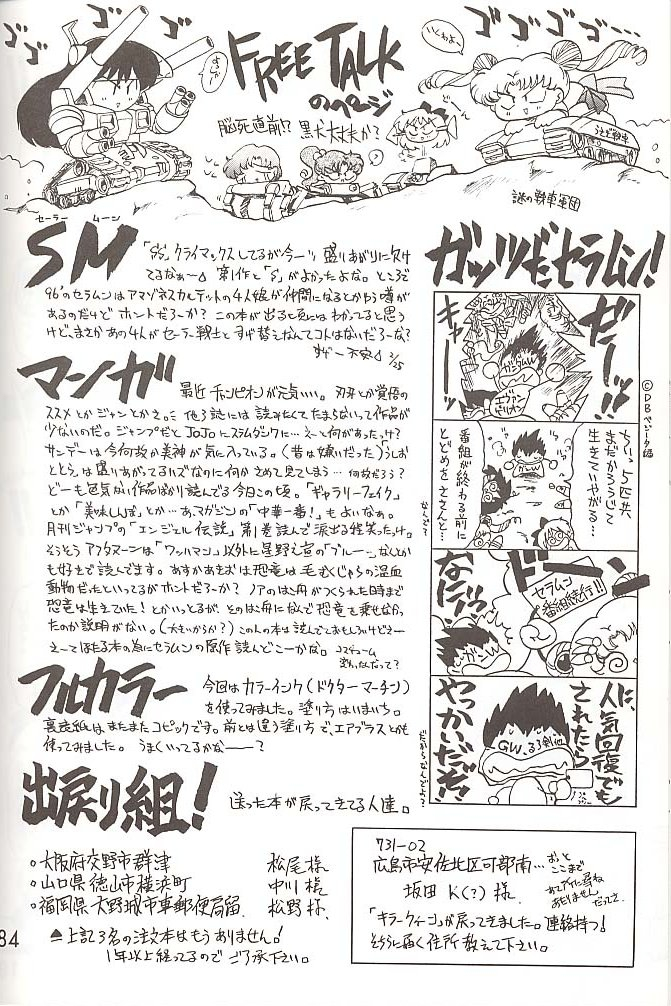 ゴゴゴ
FREE TALK
のページ
脳死直前!? 黒犬大丈夫か?
ゴゴゴゴ
謎の戦車軍団
セーラー ムーン
SM
「SS」クライマックスしてるが今一つ盛りあがりに欠け
てるなぁ〜 第1作と「S」がよかったよな。ところで
96'のセラムンはアマゾネスカルテットの4人娘が仲間になるとかゆう噂が
あるのだけどホントだろーか? この本が出る頃にはわかってると思う
けど、まさかあの4人がセーラー戦士とすげ替えなんてコトはないだろーな?
すげー不安 2/25
マンガ
最近チャンピオンが元気いい。刃牙とか覚悟の
ススメとかジャンとかさ。他3誌には読みたくてたまらないって作品が
少ないのだ。ジャンプだとJoJoにスラムダンクに…えーて何があったっけ?
サンデーは今何故か美神が気に入っている。(昔は嫌いだった)うしお
ととらは盛りあがってるハズなのに何かさめて見てしまう…何故だろう?
どーも色気ない作品ばかり読んでる今日この頃。「ギャラリーフェイク」
とか「美味しんぼ」とか…あ、マガジンの「中華一番!」もよいなぁ。
月刊ジャンプの「エンジェル伝説」第1巻読んで涙出る程笑ったっけ。
そうそうアフタヌーンは「ワッハマン」以外に星野之宣の「ブルー」なんとか
も好きで読んでます。あすかあきおは恐竜は毛むくじゃらの温血
動物だったといってるがホントだろーか? ノアのはこ舟がつくられた時まで
恐竜は生きていた!とかいっとるが、そのはこ舟になんで恐竜を乗せなかっ
たのか説明がない。(大きいからか?)この人の本は読んでとおもしろいけどさー
えーてほたる本の為にセラムンの原作読んどこーかな。
フルカラー
今回はカラーインク(ドクターマーチン)
を使ってみました。塗り方はいまいち。
裏表紙はまたまたコピックです。前とは違う塗り方で、エアブラスとか
使ってみました。 うまくいってるかなー?
出戻り組!
送った本が戻ってきてる人達。
○大阪府交野市群津 松尾様
○山口県徳山市横浜町 中川様
○福岡県大野城市東郵便局留 松野様
▲上記3名の注文本はもうありません!
1年以上経ってるのでご了承下さい。
731-02
広島市安佐北区可部南…
おっとここまで
坂田 K(?) 様
「キラークィーン」が戻ってきました。連絡待つ!
そちらに届く住所教えて下さい。
ガッツだセラムン!
©DBベジータ編
ゼーッ!!
キャー
ガンダムW
エヴァンゲリオン
ちいっ、5匹共
まだかろうじて
生きていやがる…
番組が終わる前に
とどめをささんと…
なんで?
ドーン
セラムン
番組続行!!
なにいっ!
人気回復でも
されたら
やっかいだぞ!
GW、るろ剣他
だからなんでよ?
84